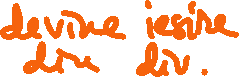 devine iesire
din div.